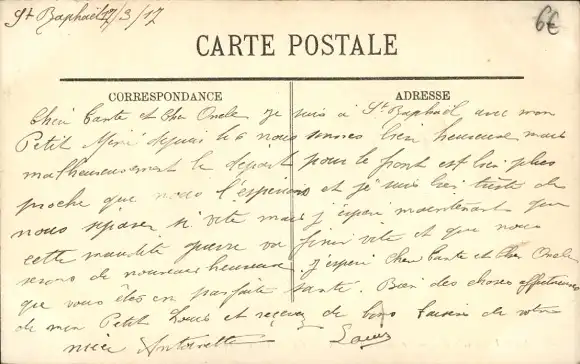 St Raphaël 17/3/17
6€
CARTE POSTALE
CORRESPONDANCE
ADRESSE
Cher Tante et Cher Oncle je suis à St Raphaël avec mon
Petit depuis le 6 nous sommes bien heureuse mais
malheureusement le départ pour le front est bien plus
proche que nous l'esperions et je suis bien triste de
nous séparer si vite mais j'espère maintenant que
cette maudite guerre va finir vite et que nous
serons de nouveau heureuse j'espère Cher Tante et Cher Oncle
que vous êtes en parfaite santé. Bien des choses affectueuses
de mon Petit Louis et recevez de bons baisers de votre
nièce Antoinette Louis